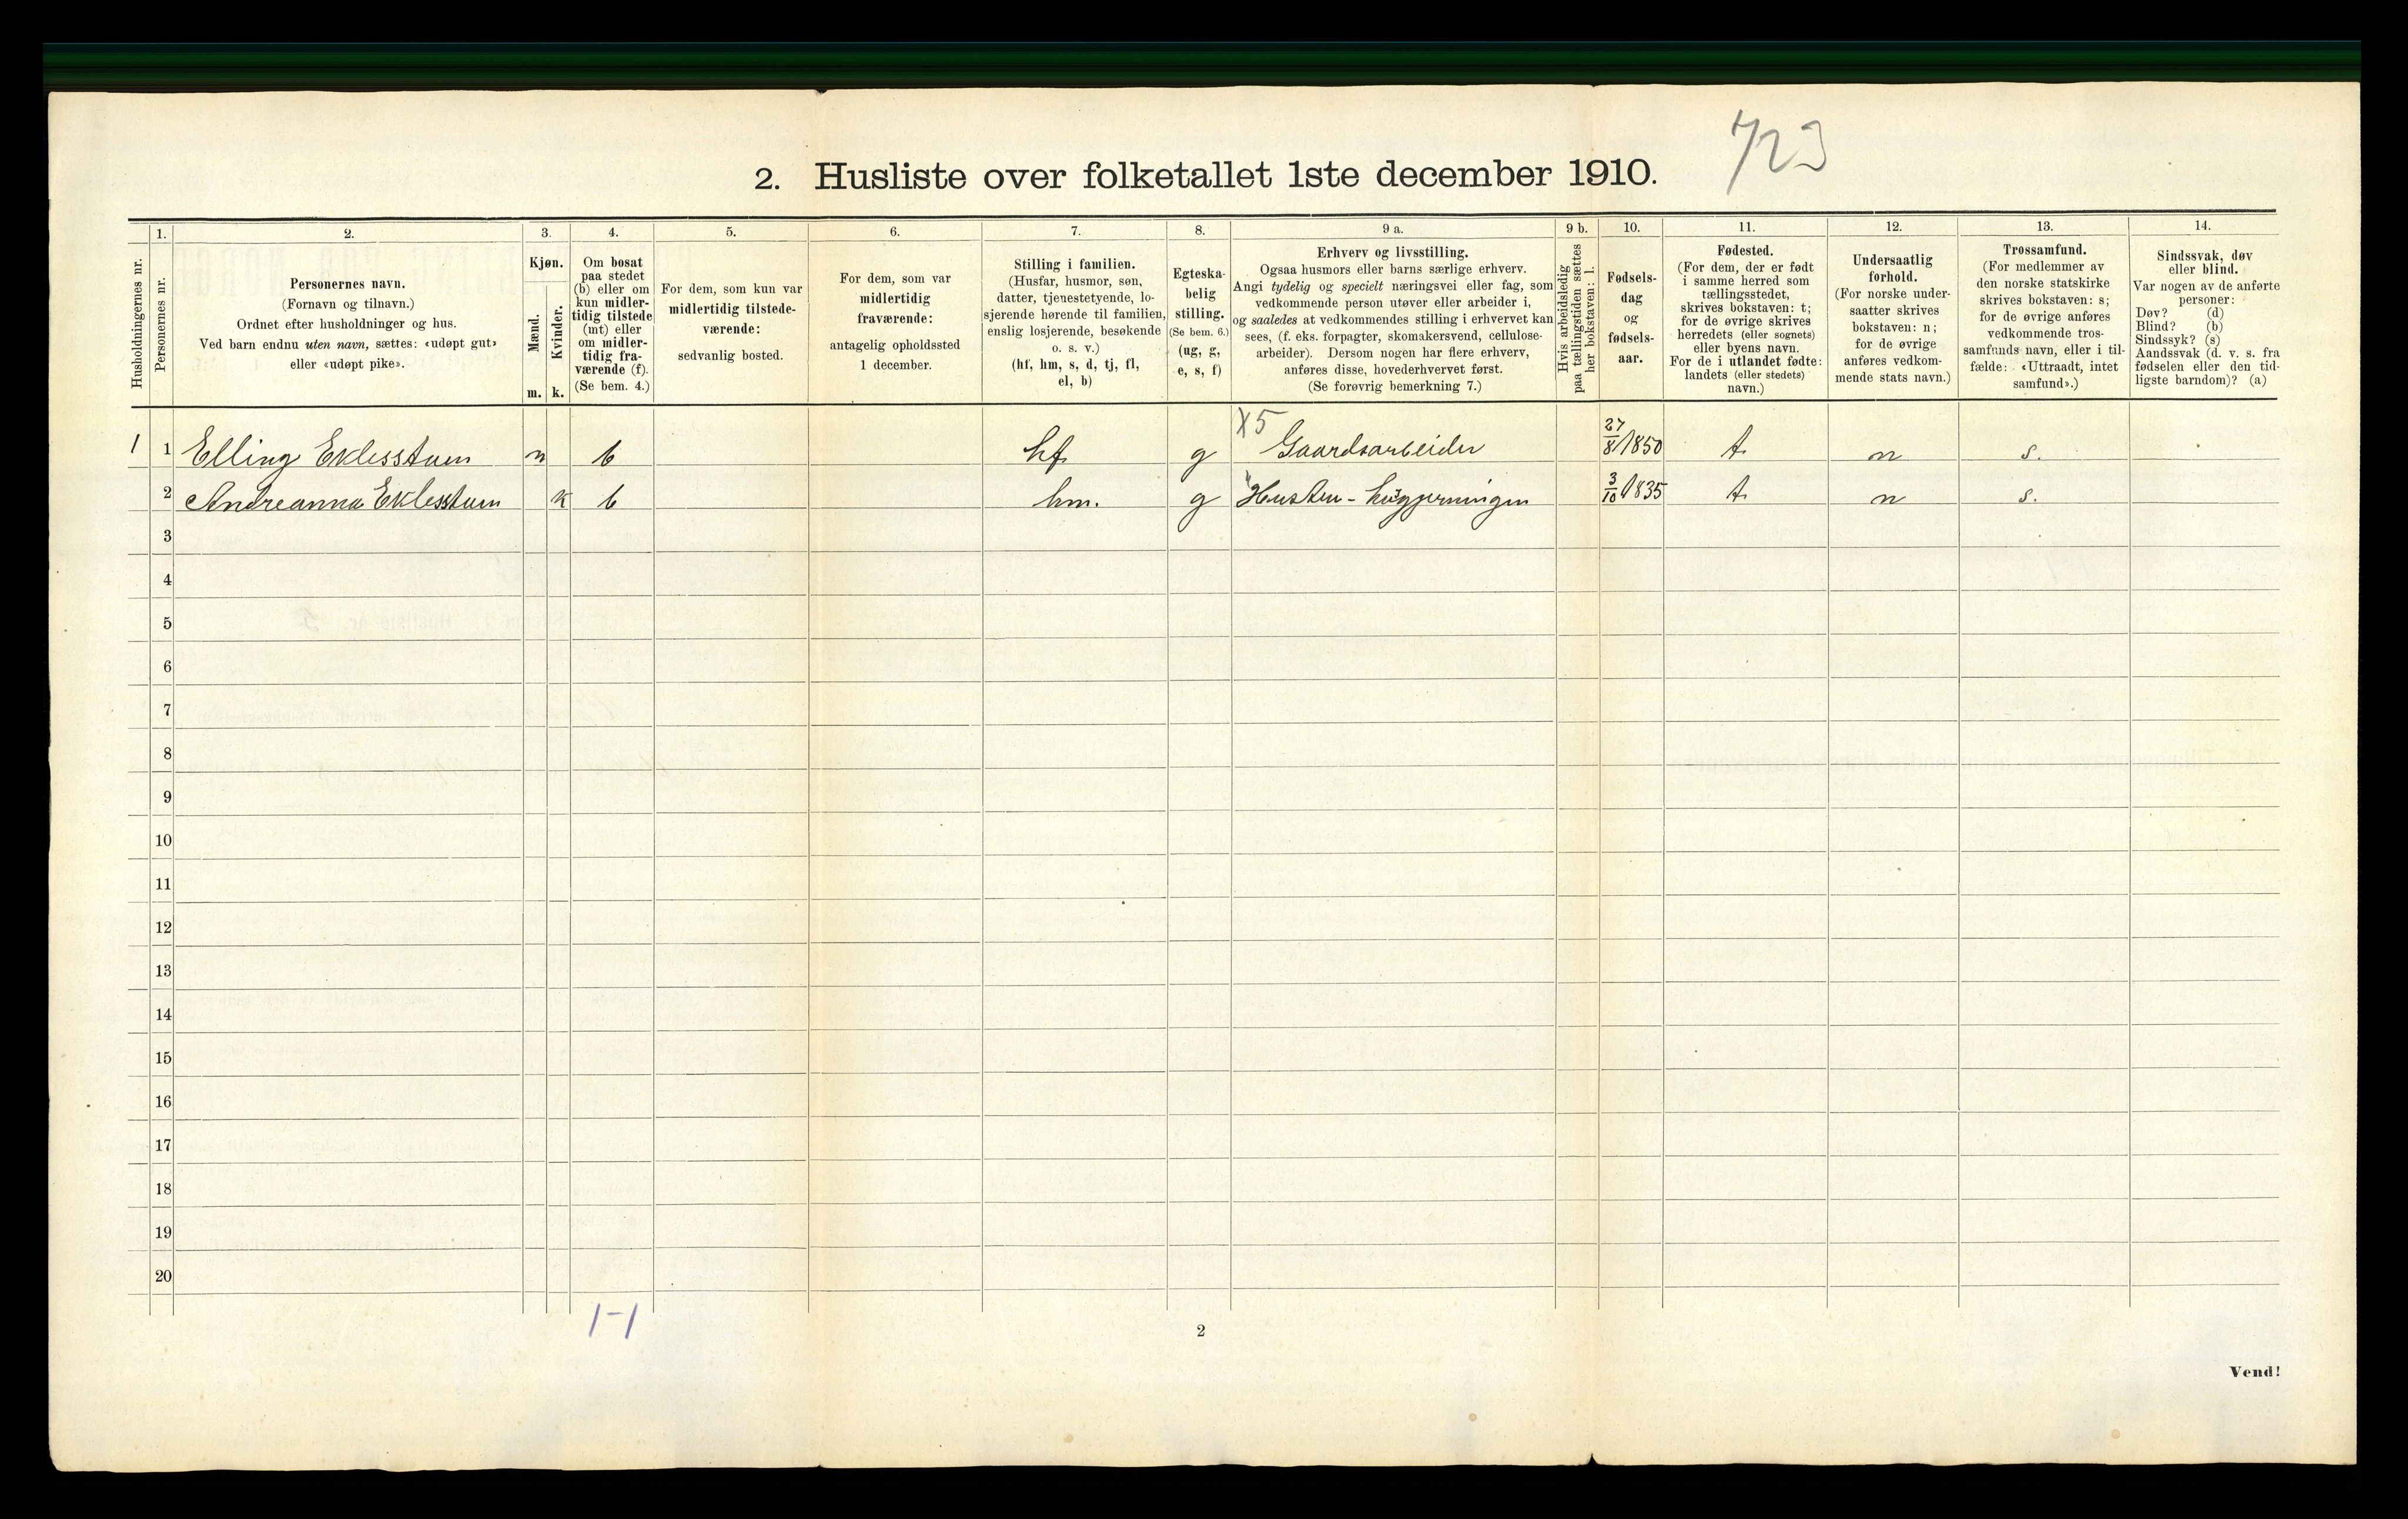 723
2. Husliste over folketallet 1ste december 1910.
1. 2. 3. 4. 5. 6. 7. 8. 9 a. 9 b. 10. 11. 12. 13. 14.
Husholdningernes nr.
Personernes nr.
Personernes navn.
(Fornavn og tilnavn.)
Ordnet efter husholdninger og hus.
Ved barn endnu uten navn, sættes: «udøpt gut»
eller «udøpt pike».
Kjøn.
Mænd.
Kvinder.
m. k.
Om bosat
paa stedet
(b) eller om
kun midler-
tidig tilstede
(mt) eller
om midler-
tidig fra-
værende (f).
(Se bem. 4.)
For dem, som kun var
midlertidig tilstede-
værende:
sedvanlig bosted.
For dem, som var
midlertidig
fraværende:
antagelig opholdssted
1 december.
Stilling i familien.
(Husfar, husmor, søn,
datter, tjenestetyende, lo-
sjerende hørende til familien,
enslig losjerende, besøkende
o. s. v.)
(hf, hm, s, d, tj, fl,
el, b)
Egteska-
belig
stilling.
(Se bem. 6.)
(ug, g,
e, s, f)
Erhverv og livsstilling.
Ogsaa husmors eller barns særlige erhverv.
Angi tydelig og specielt næringsvei eller fag, som
vedkommende person utøver eller arbeider i,
og saaledes at vedkommendes stilling i erhvervet kan
sees, (f. eks. forpagter, skomakersvend, cellulose-
arbeider). Dersom nogen har flere erhverv,
anføres disse, hovederhvervet først.
(Se forøvrig bemerkning 7.)
Hvis arbeidsledig
paa tællingstiden sættes
her bokstaven: l.
Fødsels-
dag
og
fødsels-
aar.
Fødested.
(For dem, der er født
i samme herred som
tællingsstedet,
skrives bokstaven: t;
for de øvrige skrives
herredets (eller sognets)
eller byens navn.
For de i utlandet fødte:
landets (eller stedets)
navn.)
Undersaatlig
forhold.
(For norske under-
saatter skrives
bokstaven: n;
for de øvrige
anføres vedkom-
mende stats navn.)
Trossamfund.
(For medlemmer av
den norske statskirke
skrives bokstaven: s;
for de øvrige anføres
vedkommende tros-
samfunds navn, eller i til-
fælde: «Uttraadt, intet
samfund».)
Sindssvak, døv
eller blind.
Var nogen av de anførte
personer:
Døv? (d)
Blind? (b)
Sindssyk? (s)
Aandssvak (d. v. s. fra
fødselen eller den tid-
ligste barndom)? (a)
X5
1 1 Elling Eklesstuen m b hf g Gaardsarbeider 27/8 1850 t. n s.
2 Andreanna Eklesstuen k b hm. g 3/10 1835 t. n s.
3
4
5
6
7
8
9
10
11
12
13
14
15
16
17
18
19
20
1-1
2
Vend!